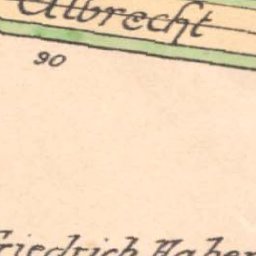 Albrecht
90
Friedrich Haber